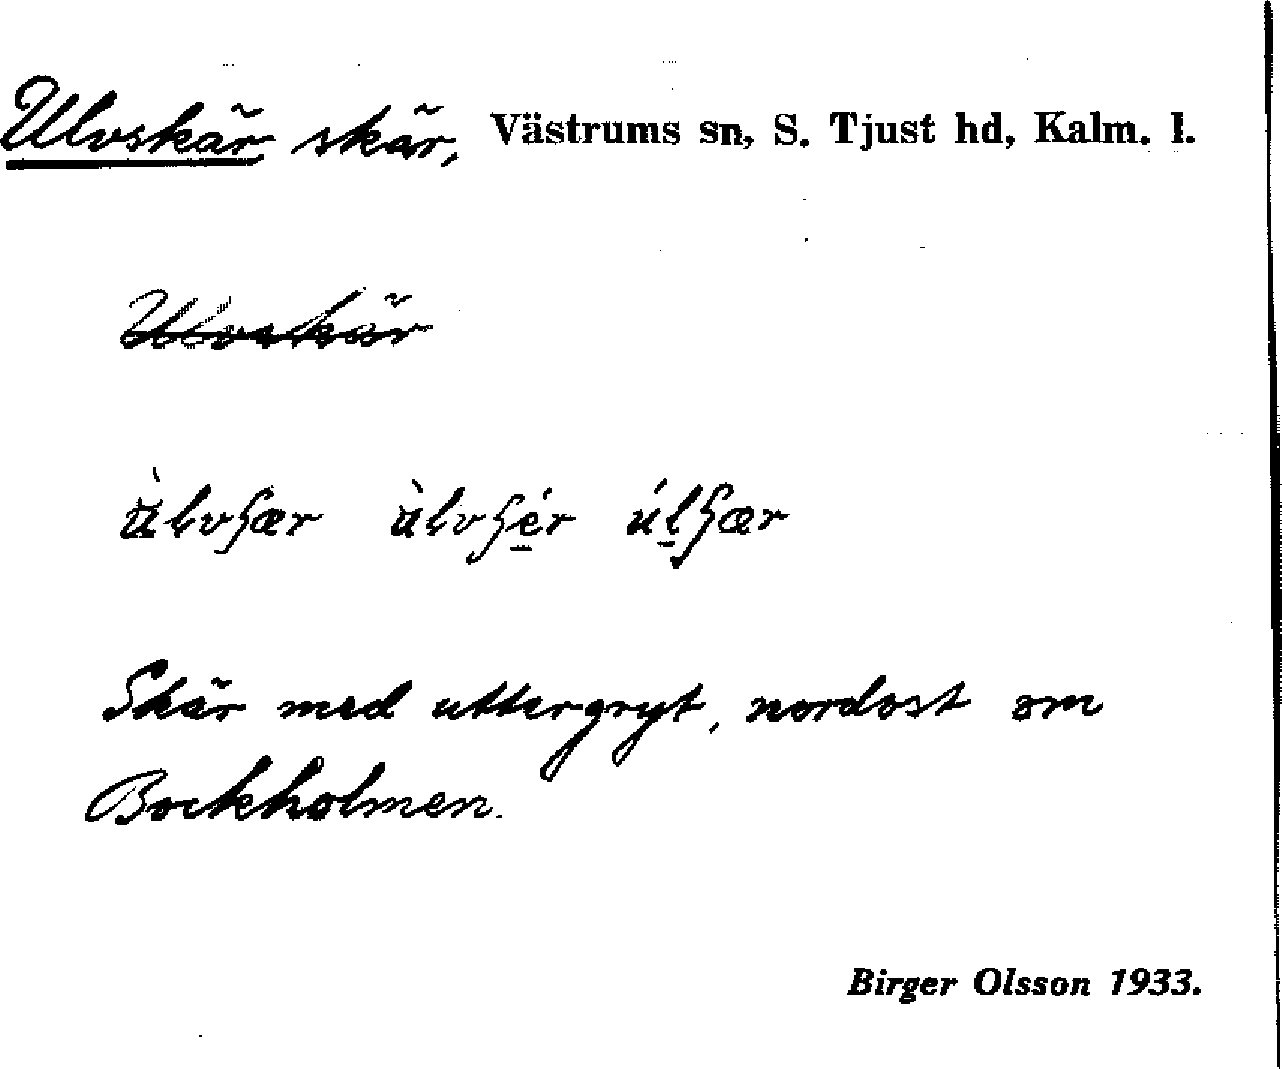 Ulvskär, skär, Västrums sn, S. Tjust hd, Kalm. l.
Ulvskär
ùlvʃær ùlvʃér úlʃær
Skär med uttergryt, nordost om
Bockholmen.
Birger Olsson 1933.